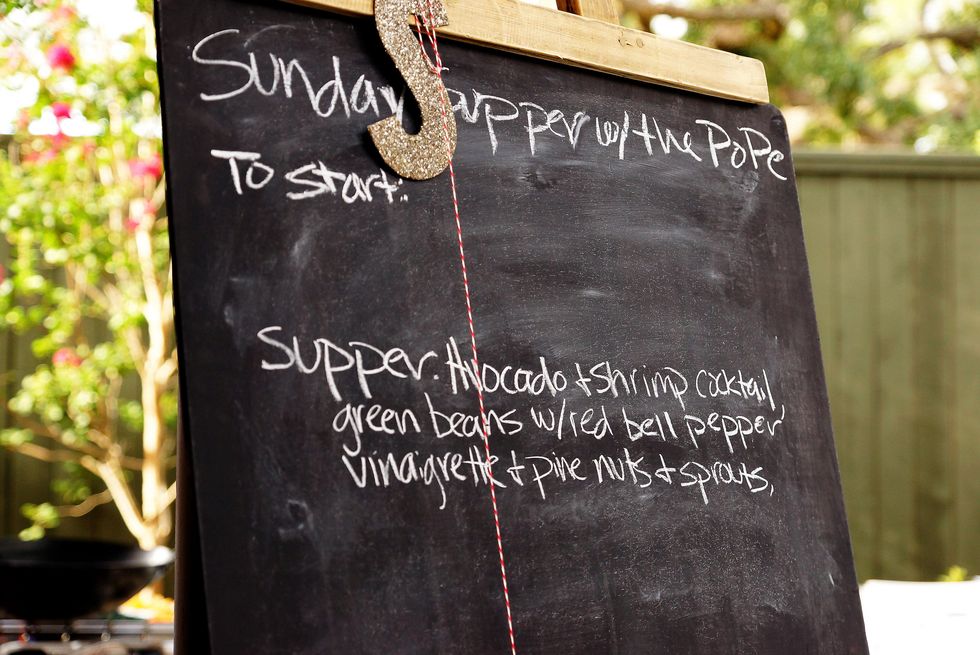 Sunday Supper w/ the PoPe
To start:
Supper: Avocado + shrimp cocktail,
green beans w/ red bell pepper
vinaigrette + pine nuts + sprouts,